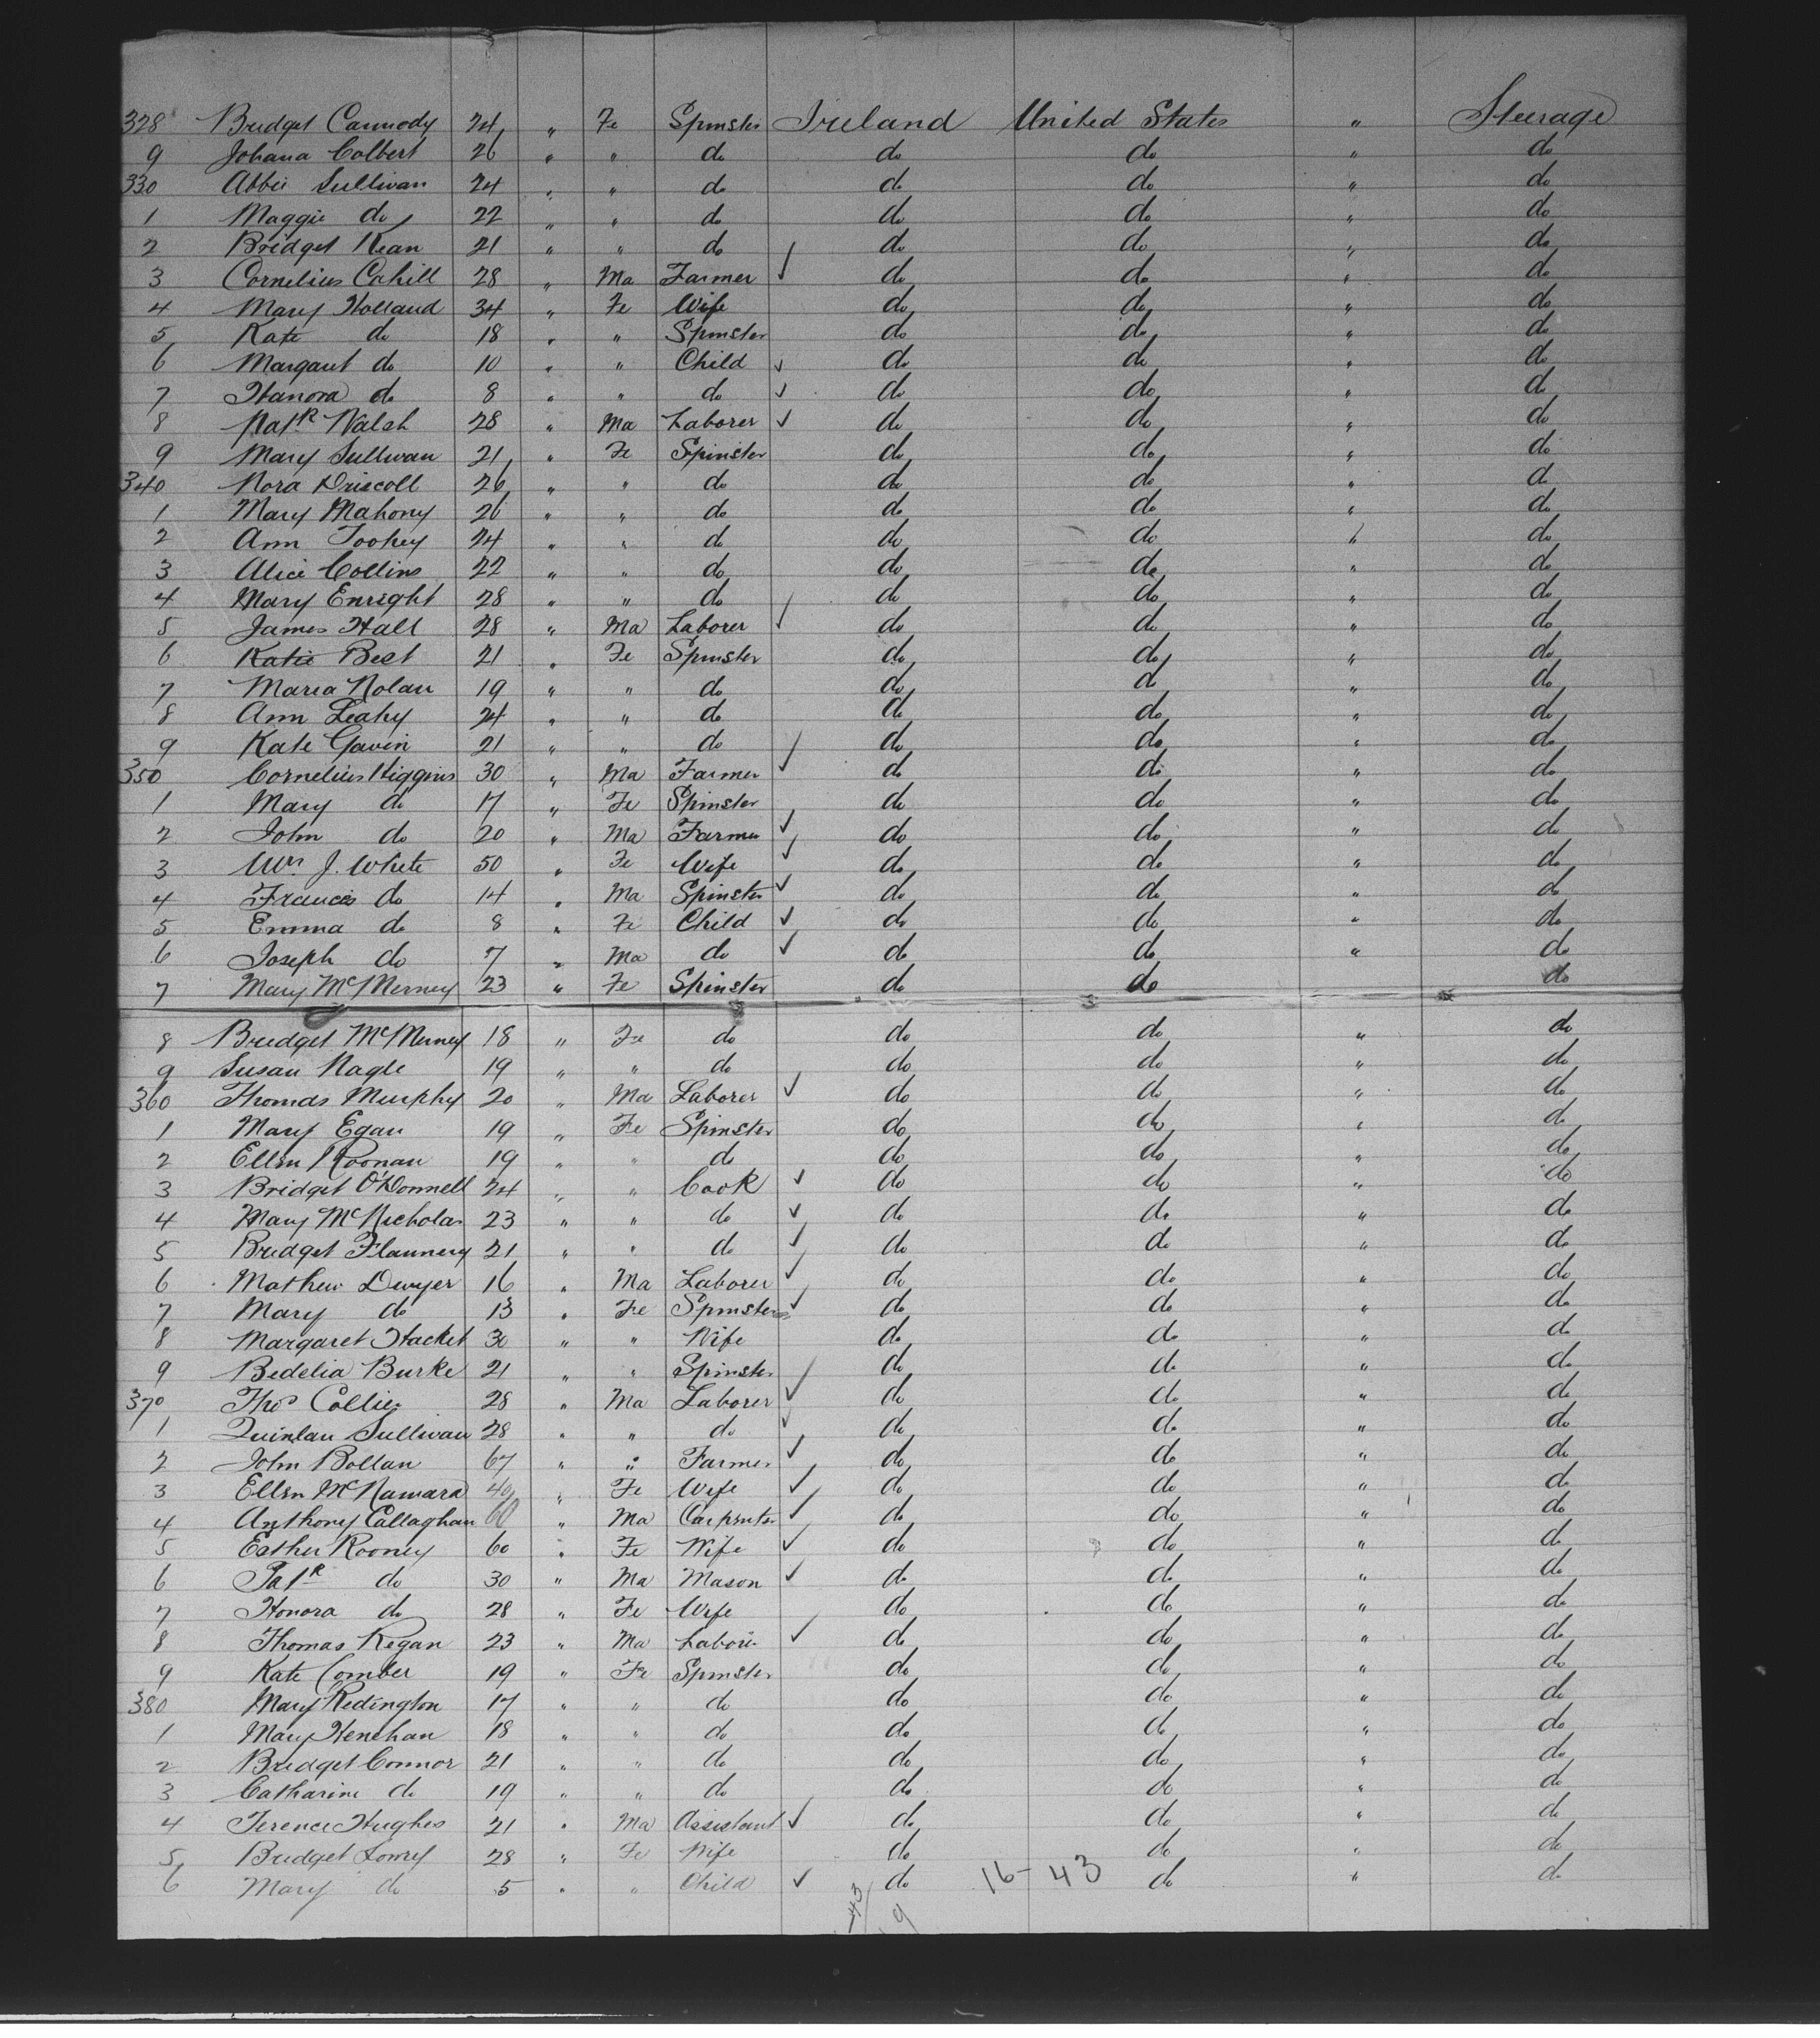 328 Bridget Carmody 24 " Fe Spinster Ireland United States " Steerage
9 Johana Colbert 26 " " do do do " do
330 Abbie Sullivan 24 " " do do do " do
1 Maggie do 22 " " do do do " do
2 Bridget Kean 21 " " do do do " do
3 Cornelius Cahill 28 " Ma Farmer ✓ do do " do
4 Mary Holland 34 " Fe Wife do do " do
5 Kate do 18 " " Spinster do do " do
6 Margaret do 10 " " Child ✓ do do " do
7 Hanora do 8 " " do ✓ do do " do
8 Patk Walsh 28 " Ma Laborer ✓ do do " do
9 Mary Sullivan 21 " Fe Spinister do do " do
340 Nora Driscoll 26 " " do do do " do
1 Mary Mahony 26 " " do do do " do
2 Ann Toohey 24 " " do do do " do
3 Alice Collins 22 " " do do do " do
4 Mary Enright 28 " " do do do " do
5 James Hall 28 " Ma Laborer ✓ do do " do
6 Katie Best 21 " Fe Spinster do do " do
7 Maria Nolan 19 " " do do do " do
8 Ann Leahy 24 " " do do do " do
9 Kate Gavin 21 " " do do do " do
350 Cornelius Higgins 30 " Ma Farmer ✓ do do " do
1 Mary do 17 " Fe Spinster do do " do
2 John do 20 " Ma Farmer ✓ do do " do
3 J. White 50 " Fe Wife ✓ do do " do
4 Frances do 14 " Ma Spinster ✓ do do " do
5 Emma do 8 " Fe Child ✓ do do " do
6 Joseph do 7 " Ma do ✓ do do " do
7 Mary McNerney 23 " Fe Spinster do do " do
8 Bridget McNerney 18 " Fe do do do " do
9 Susan Nagle 19 " " do do do " do
360 Thomas Murphy 20 " Ma Laborer ✓ do do " do
1 Mary Egan 19 " Fe Spinster do do " do
2 Ellen Noonan 19 " " do do do " do
3 Bridget O'Donnell 24 " " Cook ✓ do do " do
4 Mary McNicholas 23 " " do ✓ do do " do
5 Bridget Flannery 21 " " do ✓ do do " do
6 Mathew Dwyer 16 " Ma Laborer ✓ do do " do
7 Mary do 13 " Fe Spinster ✓ do do " do
8 Margaret Hacket 30 " " Wife do do " do
9 Bedelia Burke 21 " " Spinster do do " do
370 Thos Collier 28 " Ma Laborer ✓ do do " do
1 Quinlan Sullivan 28 " " do ✓ do do " do
2 John Bollan 67 " " Farmer ✓ do do " do
3 Ellen McNamara 40 " Fe Wife ✓ do do " do
4 Anthony Callaghan 60 " Ma Carpenter ✓ do do " do
5 Esther Rooney 60 " Fe Wife ✓ do do " do
6 Patk do 30 " Ma Mason ✓ do do " do
7 Honora do 28 " Fe Wife do do " do
8 Thomas Regan 23 " Ma Laborer ✓ do do " do
9 Kate Comber 19 " Fe Spinster do do " do
380 Mary Redington 17 " " do do do " do
1 Mary Henehan 18 " " do do do " do
2 Bridget Connor 21 " " do do do " do
3 Catharine do 19 " " do do do " do
4 Terence Hughes 21 " Ma Assistant ✓ do do " do
5 Bridget Lowry 28 " Fe Wife do do " do
6 Mary do 5 " " Child ✓ do 16-43 do " do
43
9